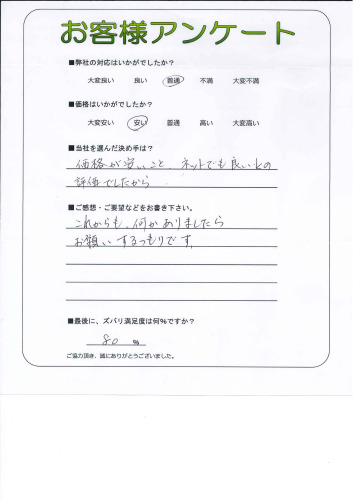 お客様アンケート
■弊社の対応はいかがでしたか?
大変良い 良い 普通 不満 大変不満
■価格はいかがでしたか?
大変安い 安い 普通 高い 大変高い
■当社を選んだ決め手は?
価格が安いこと、ネットでも良いとの
評価でしたから
■ご感想・ご要望などをお書き下さい。
これからも、何かありましたら
お願いするつもりです。
■最後に、ズバリ満足度は何%ですか?
80 %
ご協力頂き、誠にありがとうございました。